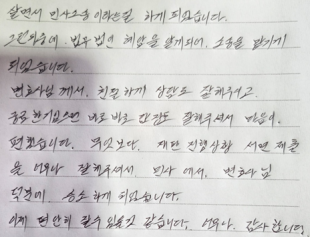 살면서 민사소송 이라는걸 하게 되었습니다.
그런와중에. 법무법인 해암을 알게되어. 소송을 맡기게
되었습니다.
변호사님 께서. 친절하게 상담도 잘해주시고.
궁금한게있으면 바로바로 답변도 잘해주셔서 마음이.
편했습니다. 무엇보다. 재판 진행상황 서면 제출
을 너무나 잘해주셔서. 민사 에서. 변호사님
덕분에. 승소 하게 되었습니다.
이제 편안히 잘수 있을것 같습니다. 너무나. 감사합니다.